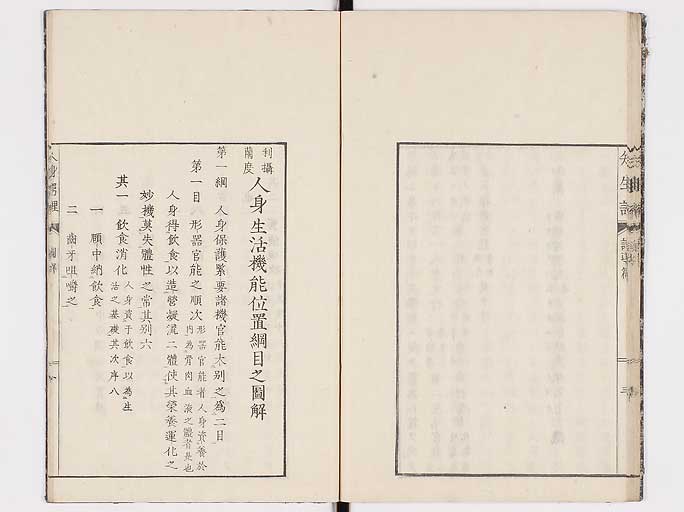 利攝
蘭度
人身生活機能位置綱目之圖解
第一綱 人身保護緊要諸機官能大別之爲二目
第一目 形器官能之順次
形器官能者人身資養於
内爲骨肉血液之體者是也
人身得飲食以造營凝流二體使其榮養運化之
妙機莫失體性之常其别六
其一 飲食消化
人身資于飲食以爲生
活之基礎其次序八
一 頤中納飲食
二 齒牙咀嚼之
人身窮理
圖解
知生論